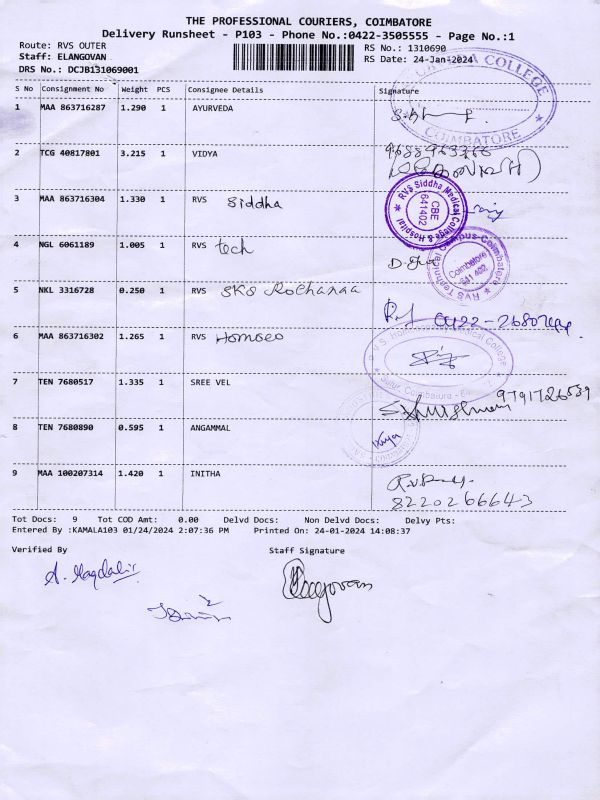 THE PROFESSIONAL COURIERS, COIMBATORE
Delivery Runsheet - P103 - Phone No.:0422-3505555 - Page No.:1
Route: RVS OUTER
RS No.: 1310690
Staff: ELANGOVAN
RS Date: 24-Jan-2024
DRS No.: DCJB131069001
S No Consignment No Weight PCS Consignee Details Signature
1 MAA 863716287 1.290 1 AYURVEDA
COLLEGE
COIMBATORE
2 TCG 40817801 3.215 1 VIDYA
3 MAA 863716304 1.330 1 RVS Siddha
RVS Siddha Medical College & Hospital
CBE
641402
4 NGL 6061189 1.005 1 RVS tech
RVS Technical Campus-Coimbatore
Coimbatore
641 402
5 NKL 3316728 0.250 1 RVS
6 MAA 863716302 1.265 1 RVS Homoeo
Medical College
Sulur, Coimbatore
7 TEN 7680517 1.335 1 SREE VEL
9791726539
8 TEN 7680890 0.595 1 ANGAMMAL
9 MAA 100207314 1.420 1 INITHA
8220266643
Tot Docs: 9 Tot COD Amt: 0.00 Delvd Docs: Non Delvd Docs: Delvy Pts:
Entered By :KAMALA103 01/24/2024 2:07:36 PM Printed On: 24-01-2024 14:08:37
Verified By Staff Signature
Elangovan